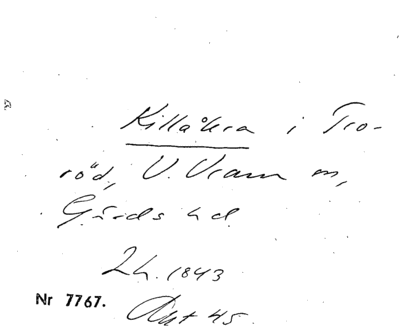 Killåkra i Tro-
röd, V. Vram sn,
Gärds hd.
Lh. 1843
Nr 7767. Akt 45.